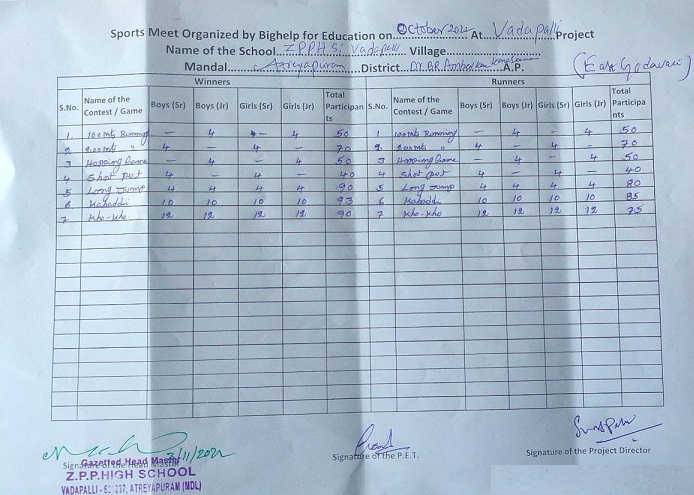 Sports Meet Organized by Bighelp for Education on October 2022 At Vadapalli Project
Name of the School Z.P.P.H.S; Vadapalli Village
Mandal Atreyapuram District Dr. B.R. Ambedkar Konaseema A.P. (East Godavari)
Winners Runners
S.No. Name of the Contest / Game Boys (Sr) Boys (Jr) Girls (Sr) Girls (Jr) Total Participants S.No. Name of the Contest / Game Boys (Sr) Boys (Jr) Girls (Sr) Girls (Jr) Total Participants
1. 100 mts Running - 4 - 4 50 1 100 mts Running - 4 - 4 50
2 200 mts " 4 - 4 - 70 2 200 mts " 4 - 4 - 70
3 Hopping Game - 4 - 4 50 3 Hopping Game - 4 - 4 50
4 Shot put 4 - 4 - 40 4 Shot put 4 - 4 - 40
5 Long Jump 4 4 4 4 90 5 Long Jump 4 4 4 4 80
6 Kabaddi 10 10 10 10 93 6 Kabaddi 10 10 10 10 85
7 Kho-Kho 12 12 12 12 90 7 Kho-Kho 12 12 12 12 75
3/11/2022
Signature of the Head Master Signature of the P.E.T. Signature of the Project Director
Gazetted Head Master
Z.P.P.HIGH SCHOOL
VADAPALLI- 237, ATREYAPURAM (MDL)